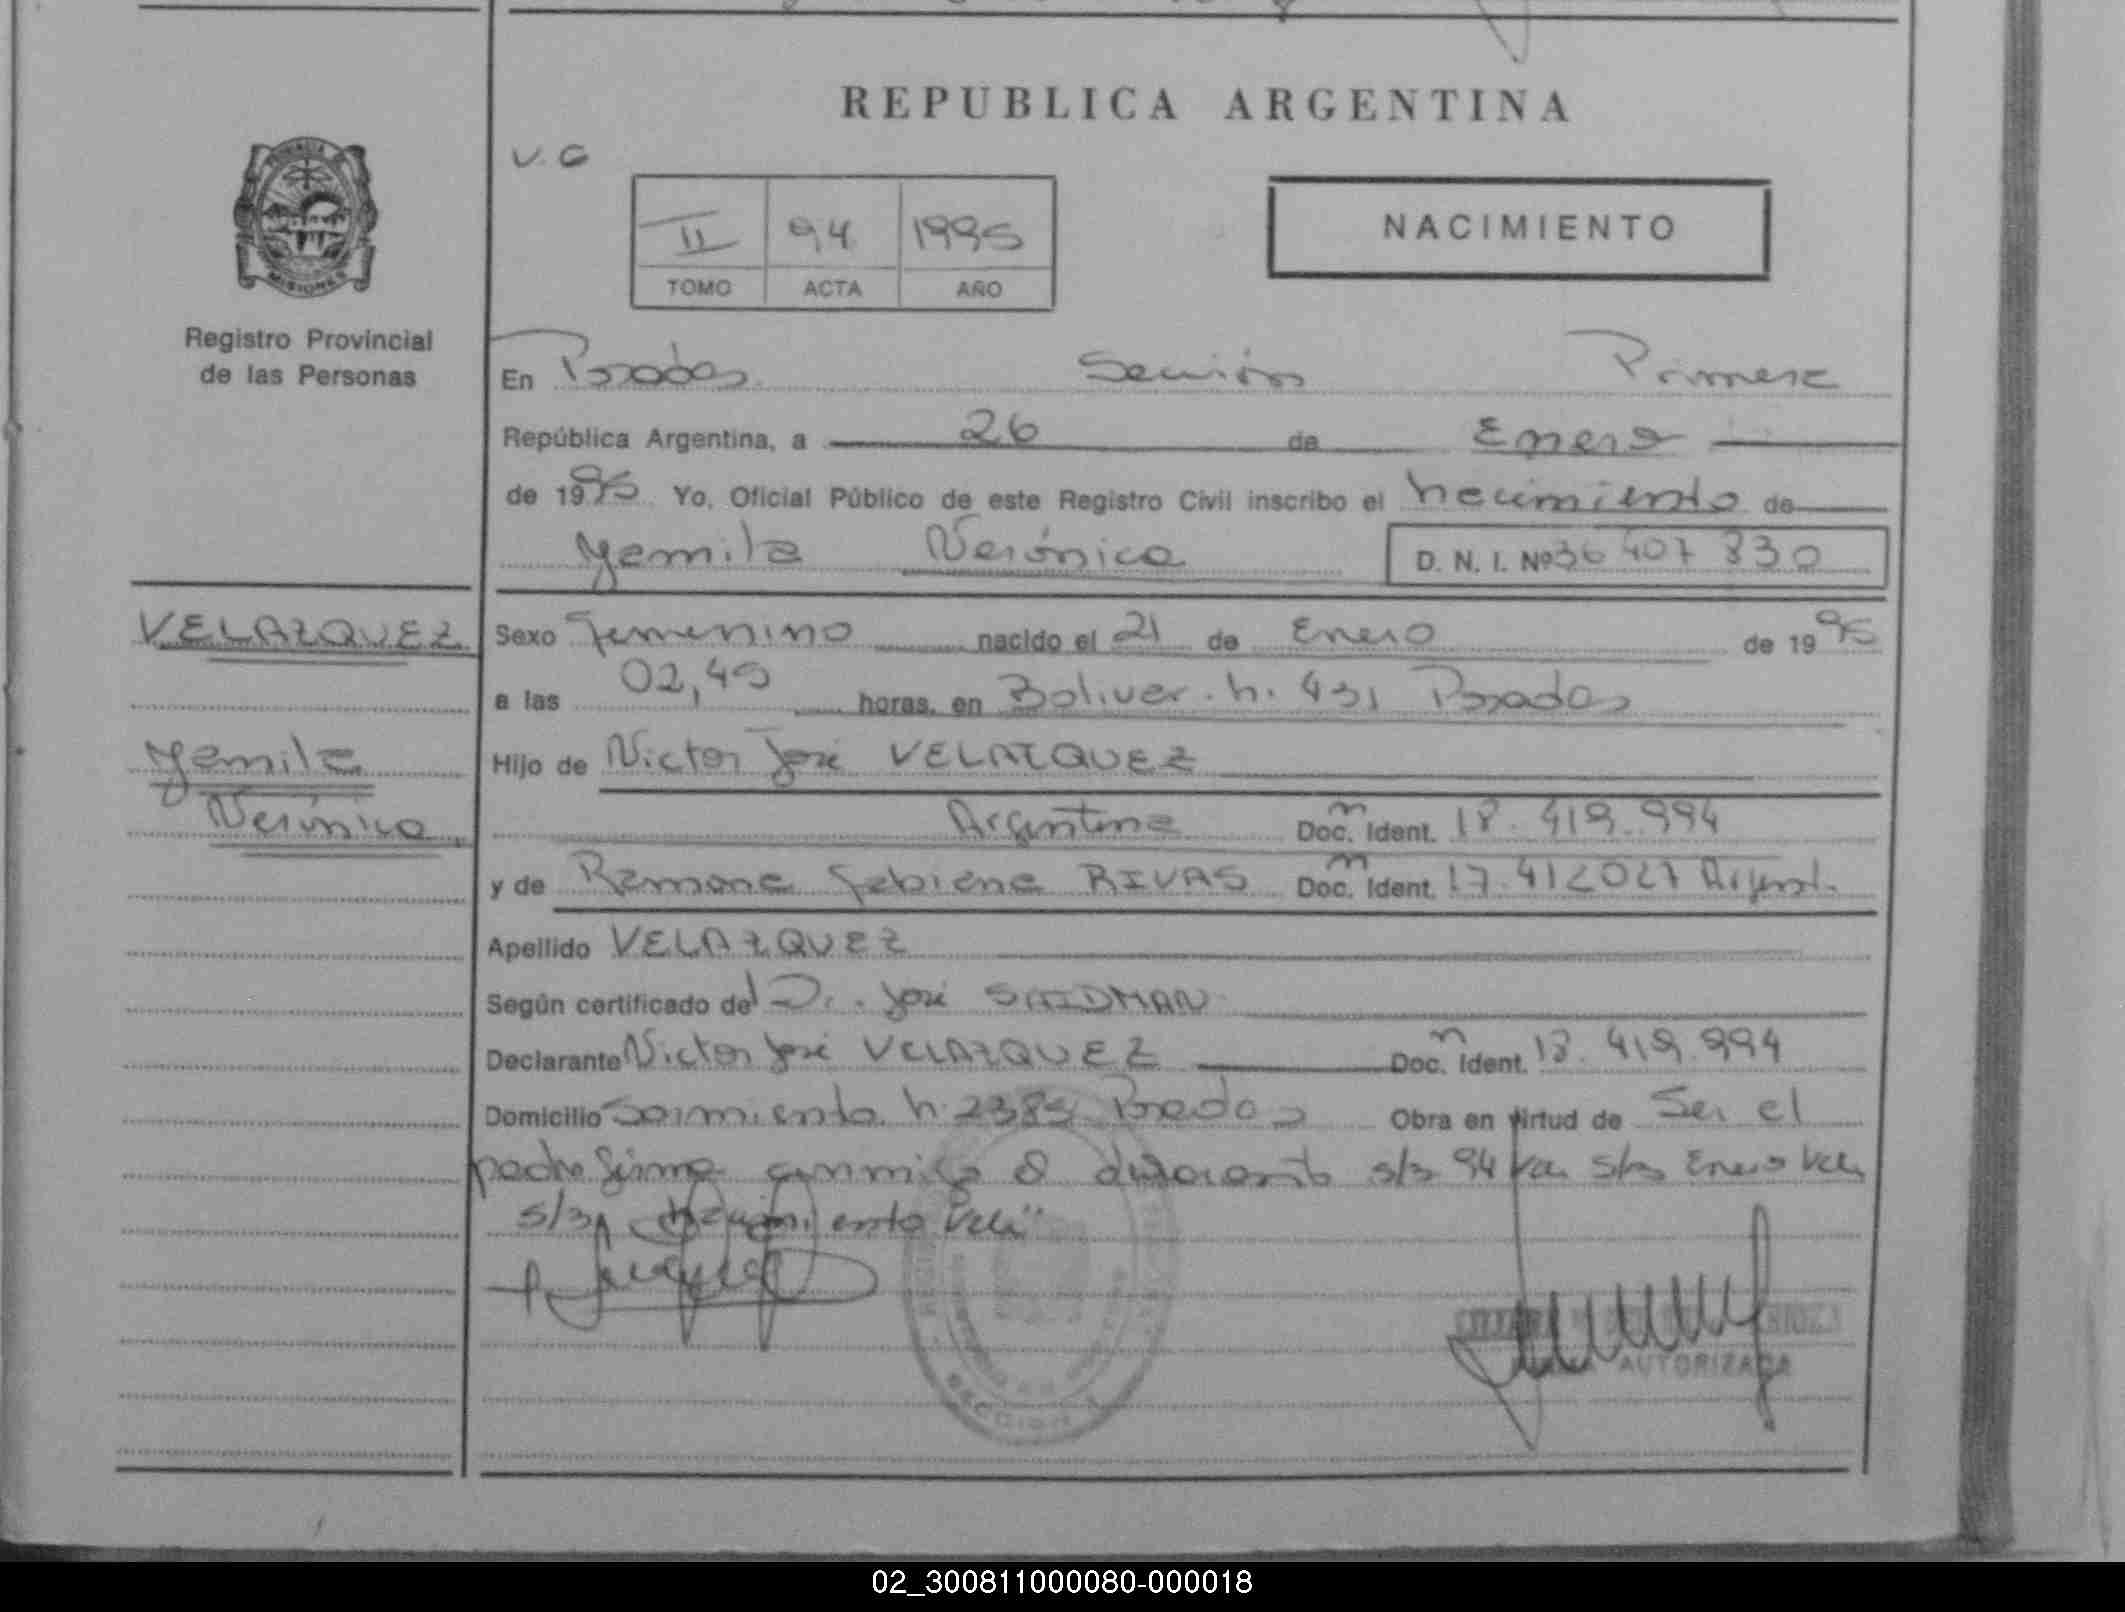 REPUBLICA ARGENTINA
V. G
II 94 1995
TOMO ACTA AÑO
NACIMIENTO
PROVINCIA DE
MISIONES
Registro Provincial
de las Personas
En Posadas Sección Primera
República Argentina, a 26 de Enero
de 1995 Yo, Oficial Público de este Registro Civil inscribo el nacimiento de
Yamila Verónica D. N. I. Nº 36 407 830
VELAZQUEZ
Yamila
Verónica
Sexo Femenino nacido el 21 de Enero de 1995
a las 02,45 horas, en Bolivar. h. 431 Posadas
Hijo de Victor José VELAZQUEZ
Argentina Doc. Ident. 18.419.994
y de Ramona Gabiana RIVAS Doc. Ident. 17.412027 Argent.
Apellido VELAZQUEZ
Según certificado del Dr. José SAIDMAN
Declarante Victor José VELAZQUEZ Doc. Ident. 18.419.994
Domicilio Sarmiento h. 2385 Posadas Obra en virtud de Ser el
padre firma conmigo el declarante s/r 94 Vale s/r Enero Vale
s/r nacimiento Vale"
SECCION 1
AUTORIZADA
02_300811000080-000018